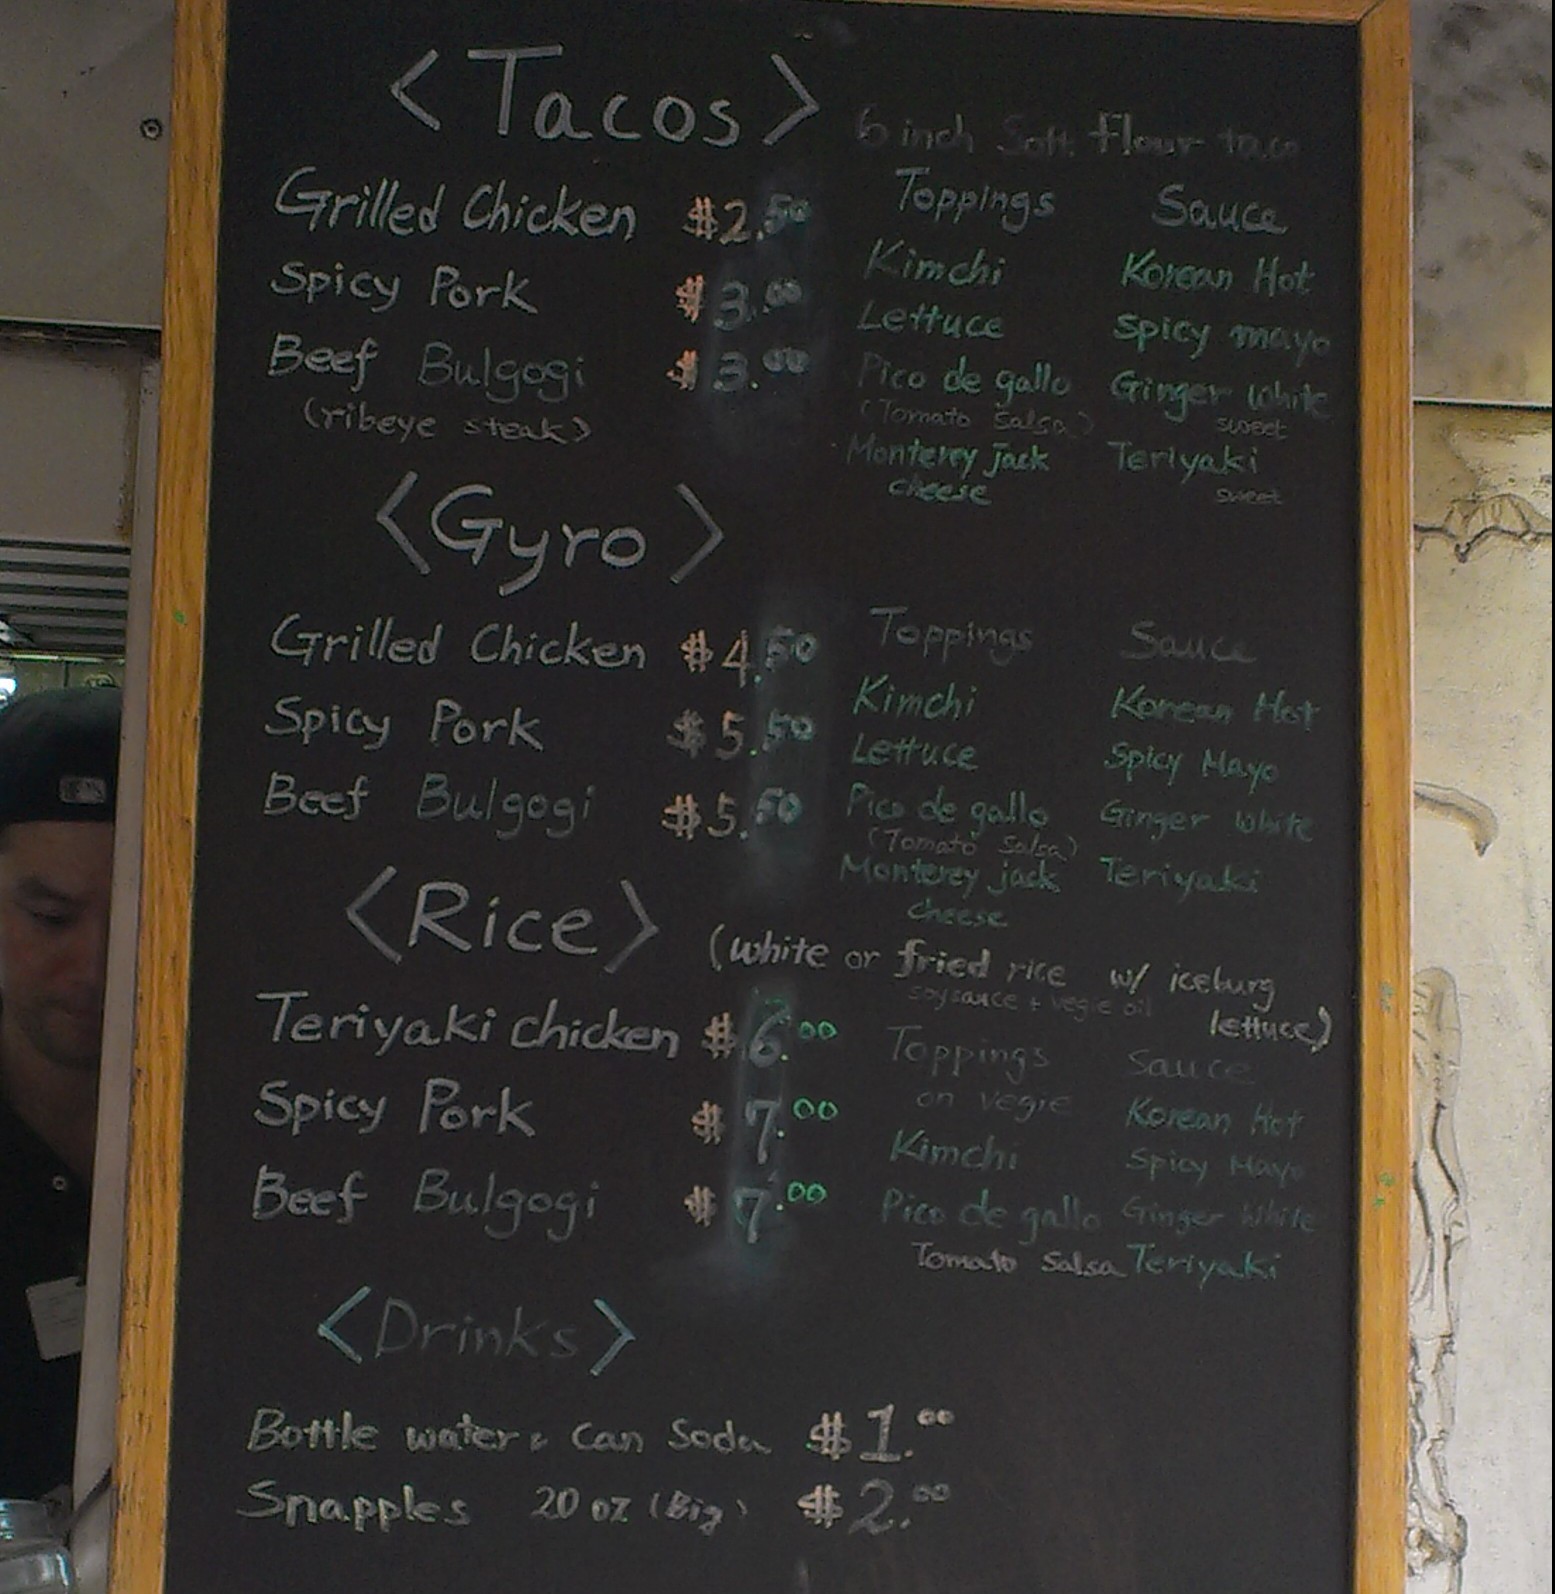 <Tacos> 6 inch Soft flour taco
Toppings Sauce
Grilled Chicken $2.50
Kimchi Korean Hot
Spicy Pork $3.00
Lettuce Spicy mayo
Beef Bulgogi $3.00
(ribeye steak)
Pico de gallo Ginger White
(Tomato Salsa) sweet
Monterey jack Teriyaki
cheese sweet
<Gyro>
Toppings Sauce
Grilled Chicken $4.50
Kimchi Korean Hot
Spicy Pork $5.50
Lettuce Spicy Mayo
Beef Bulgogi $5.50
Pico de gallo Ginger White
(Tomato Salsa)
Monterey jack Teriyaki
cheese
<Rice> (white or fried rice w/ iceburg
soysauce + vegie oil lettuce)
Teriyaki chicken $6.00
Toppings Sauce
on vegie Korean Hot
Spicy Pork $7.00
Kimchi Spicy Mayo
Beef Bulgogi $7.00
Pico de gallo Ginger White
Tomato Salsa Teriyaki
<Drinks>
Bottle water & Can Soda $1.00
Snapples 20 oz (Big) $2.00